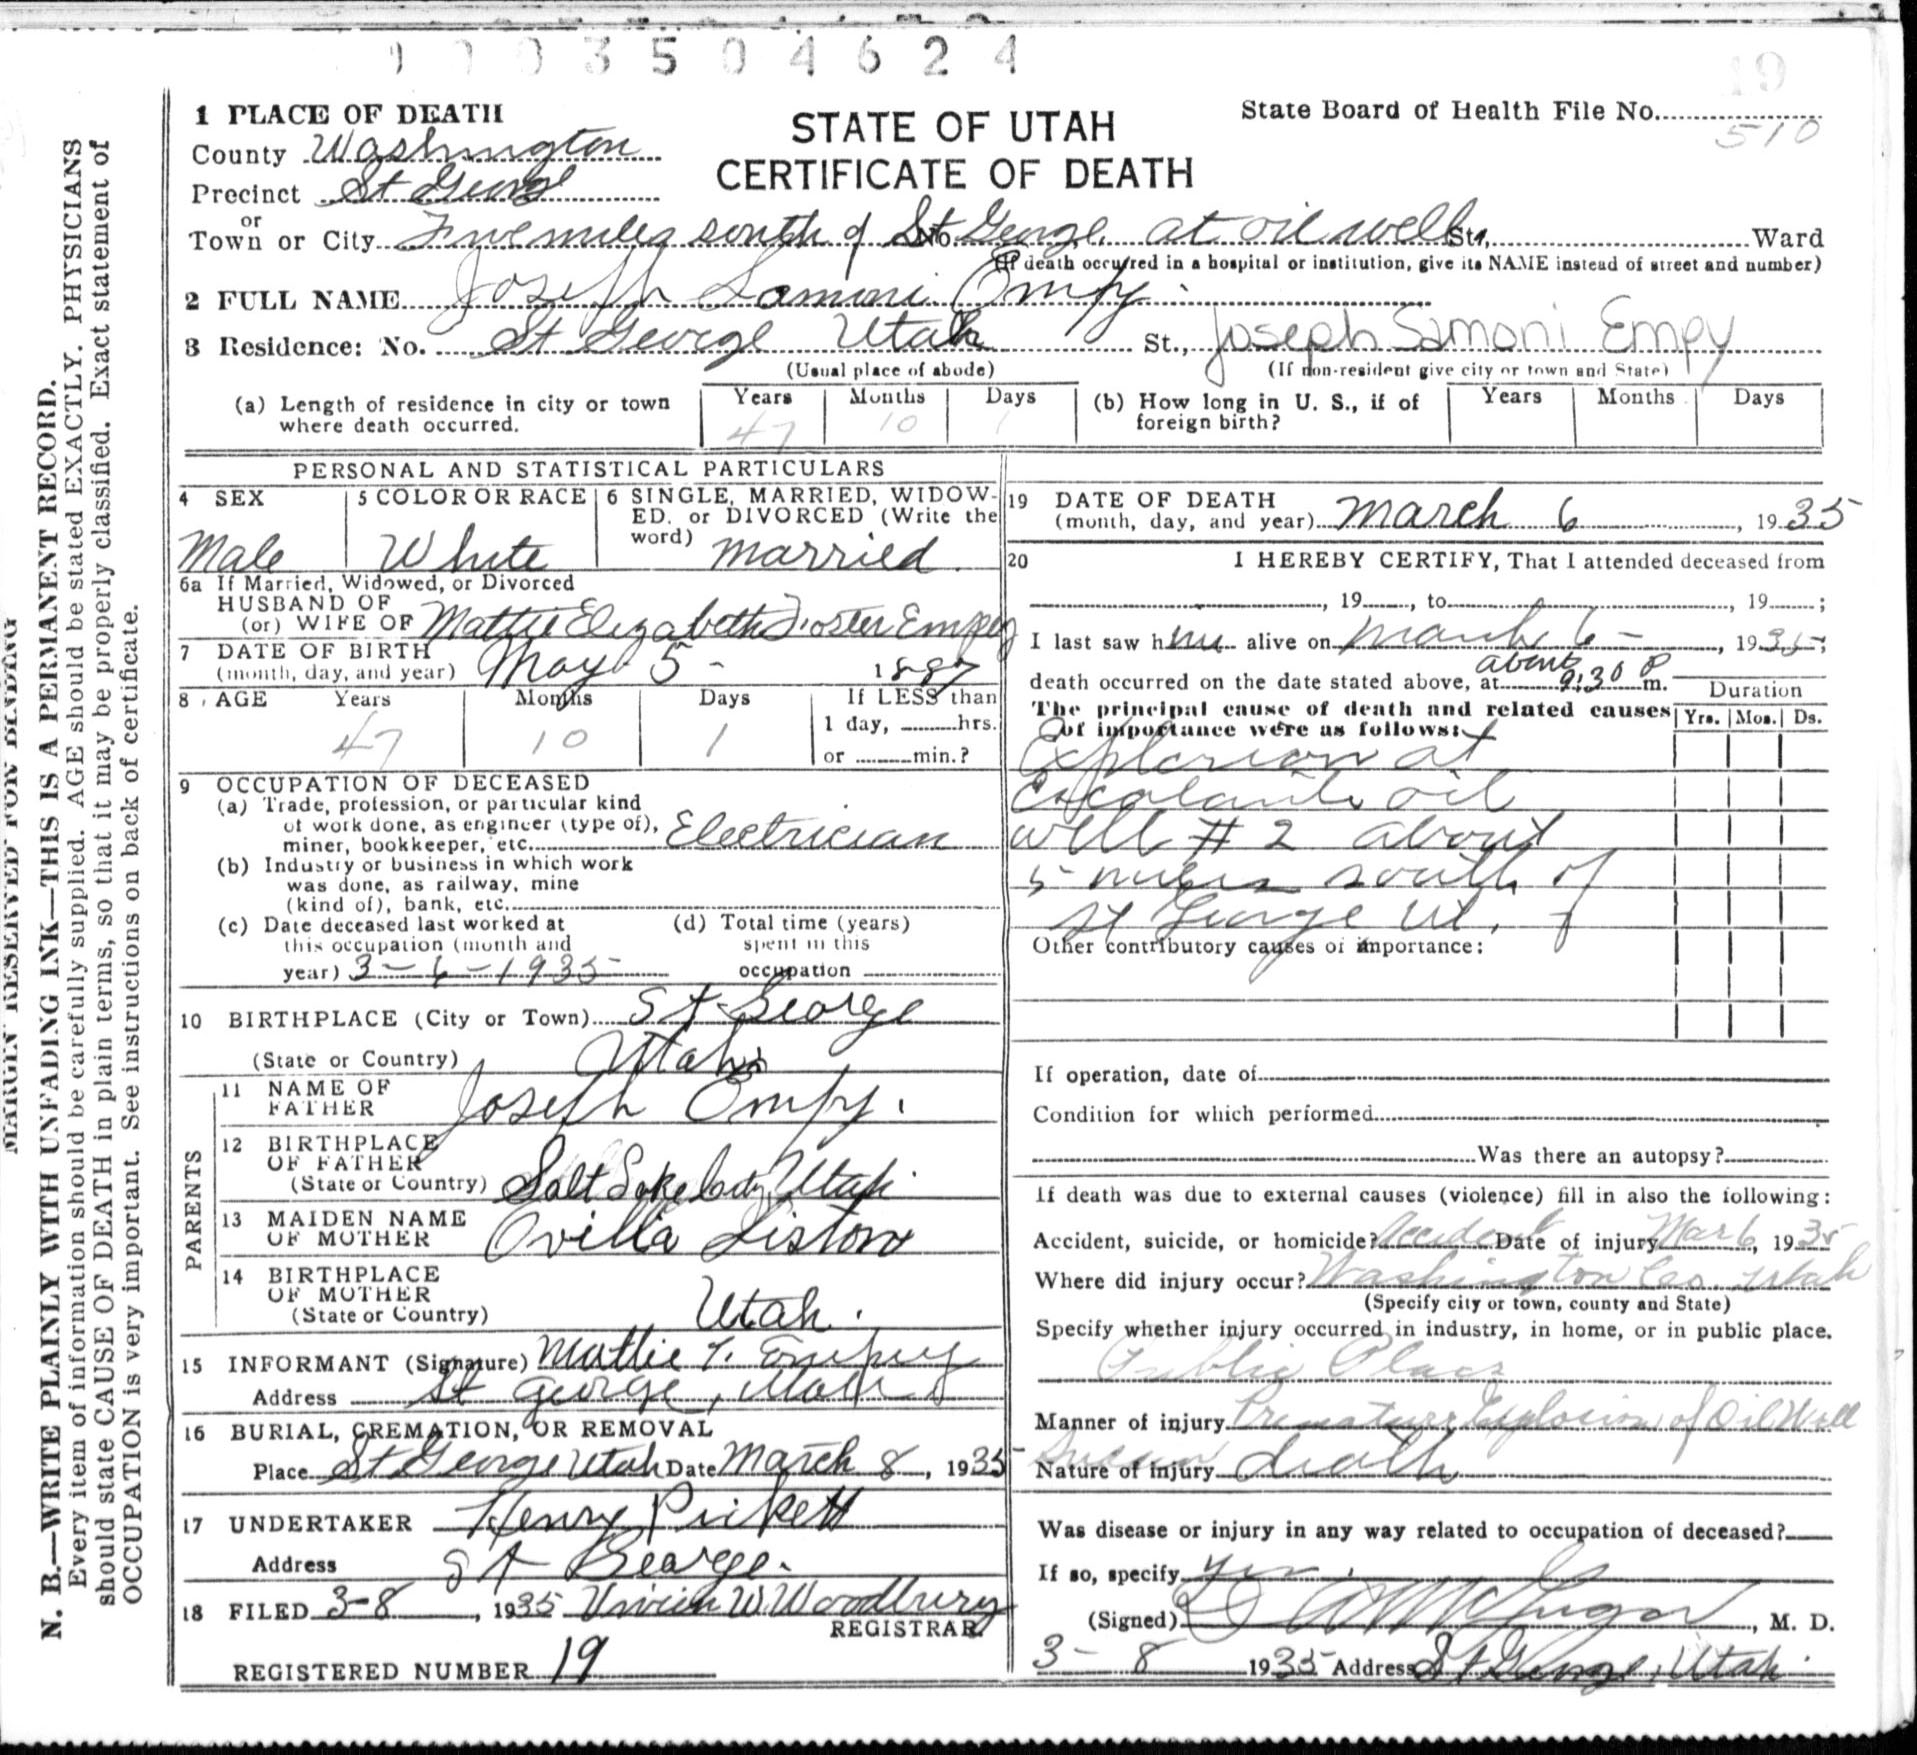 0003504624
19
1 PLACE OF DEATH
STATE OF UTAH
CERTIFICATE OF DEATH
State Board of Health File No.
510
County Washington
Precinct St George
or
Town or City Five miles south of St George, at oil well No. St., Ward
(If death occurred in a hospital or institution, give its NAME instead of street and number)
2 FULL NAME Joseph Samoni Empy.
3 Residence: No. St George Utah St., Joseph Samoni Empy
(Usual place of abode) (If non-resident give city or town and State)
(a) Length of residence in city or town where death occurred. Years 47 Months 10 Days 1
(b) How long in U. S., if of foreign birth? Years Months Days
PERSONAL AND STATISTICAL PARTICULARS
4 SEX
Male
5 COLOR OR RACE
White
6 SINGLE, MARRIED, WIDOW-
ED, or DIVORCED (Write the
word) Married.
6a If Married, Widowed, or Divorced
HUSBAND OF
(or) WIFE OF Mattie Elizabeth Foster Empey
7 DATE OF BIRTH
(month, day, and year) May 5 - 1887
8 AGE Years Months Days If LESS than
47 10 1 1 day, hrs.
or min.?
9 OCCUPATION OF DECEASED
(a) Trade, profession, or particular kind
of work done, as engineer (type of),
miner, bookkeeper, etc. Electrician
(b) Industry or business in which work
was done, as railway, mine
(kind of), bank, etc.
(c) Date deceased last worked at
this occupation (month and
year) 3-6-1935
(d) Total time (years)
spent in this
occupation
10 BIRTHPLACE (City or Town) St George
(State or Country) Utah
PARENTS
11 NAME OF
FATHER Joseph Empy.
12 BIRTHPLACE
OF FATHER
(State or Country) Salt Lake City, Utah.
13 MAIDEN NAME
OF MOTHER Ovilla Liston
14 BIRTHPLACE
OF MOTHER
(State or Country) Utah.
15 INFORMANT (Signature) Mattie F. Empey
Address St George, Utah
16 BURIAL, CREMATION, OR REMOVAL
Place St George Utah Date March 8, 1935
17 UNDERTAKER Henry Pickett
Address St George.
18 FILED 3-8, 1935 Vivien W. Woodbury
REGISTRAR
REGISTERED NUMBER 19
19 DATE OF DEATH
(month, day, and year) March 6, 1935
20 I HEREBY CERTIFY, That I attended deceased from
, 19 , to , 19 ;
I last saw him alive on March 6 -, 1935;
death occurred on the date stated above, at about 9:30 P m.
The principal cause of death and related causes
of importance were as follows:
Duration
Yrs. Mos. Ds.
Explosion at
Escalante oil
well # 2 about
5 miles south of
St George Ut.
Other contributory causes of importance:
If operation, date of
Condition for which performed
Was there an autopsy?
If death was due to external causes (violence) fill in also the following:
Accident, suicide, or homicide? Accident Date of injury Mar 6, 1935
Where did injury occur? Washington Co. Utah
(Specify city or town, county and State)
Specify whether injury occurred in industry, in home, or in public place.
Public Place
Manner of injury Premature Explosion of Oil Well
Nature of injury death
Was disease or injury in any way related to occupation of deceased?
If so, specify yes.
(Signed) McGregor, M. D.
3-8 1935 Address St George, Utah.
MARGIN RESERVED FOR BINDING
N. B.—WRITE PLAINLY WITH UNFADING INK—THIS IS A PERMANENT RECORD.
Every item of information should be carefully supplied. AGE should be stated EXACTLY. PHYSICIANS
should state CAUSE OF DEATH in plain terms, so that it may be properly classified. Exact statement of
OCCUPATION is very important. See instructions on back of certificate.